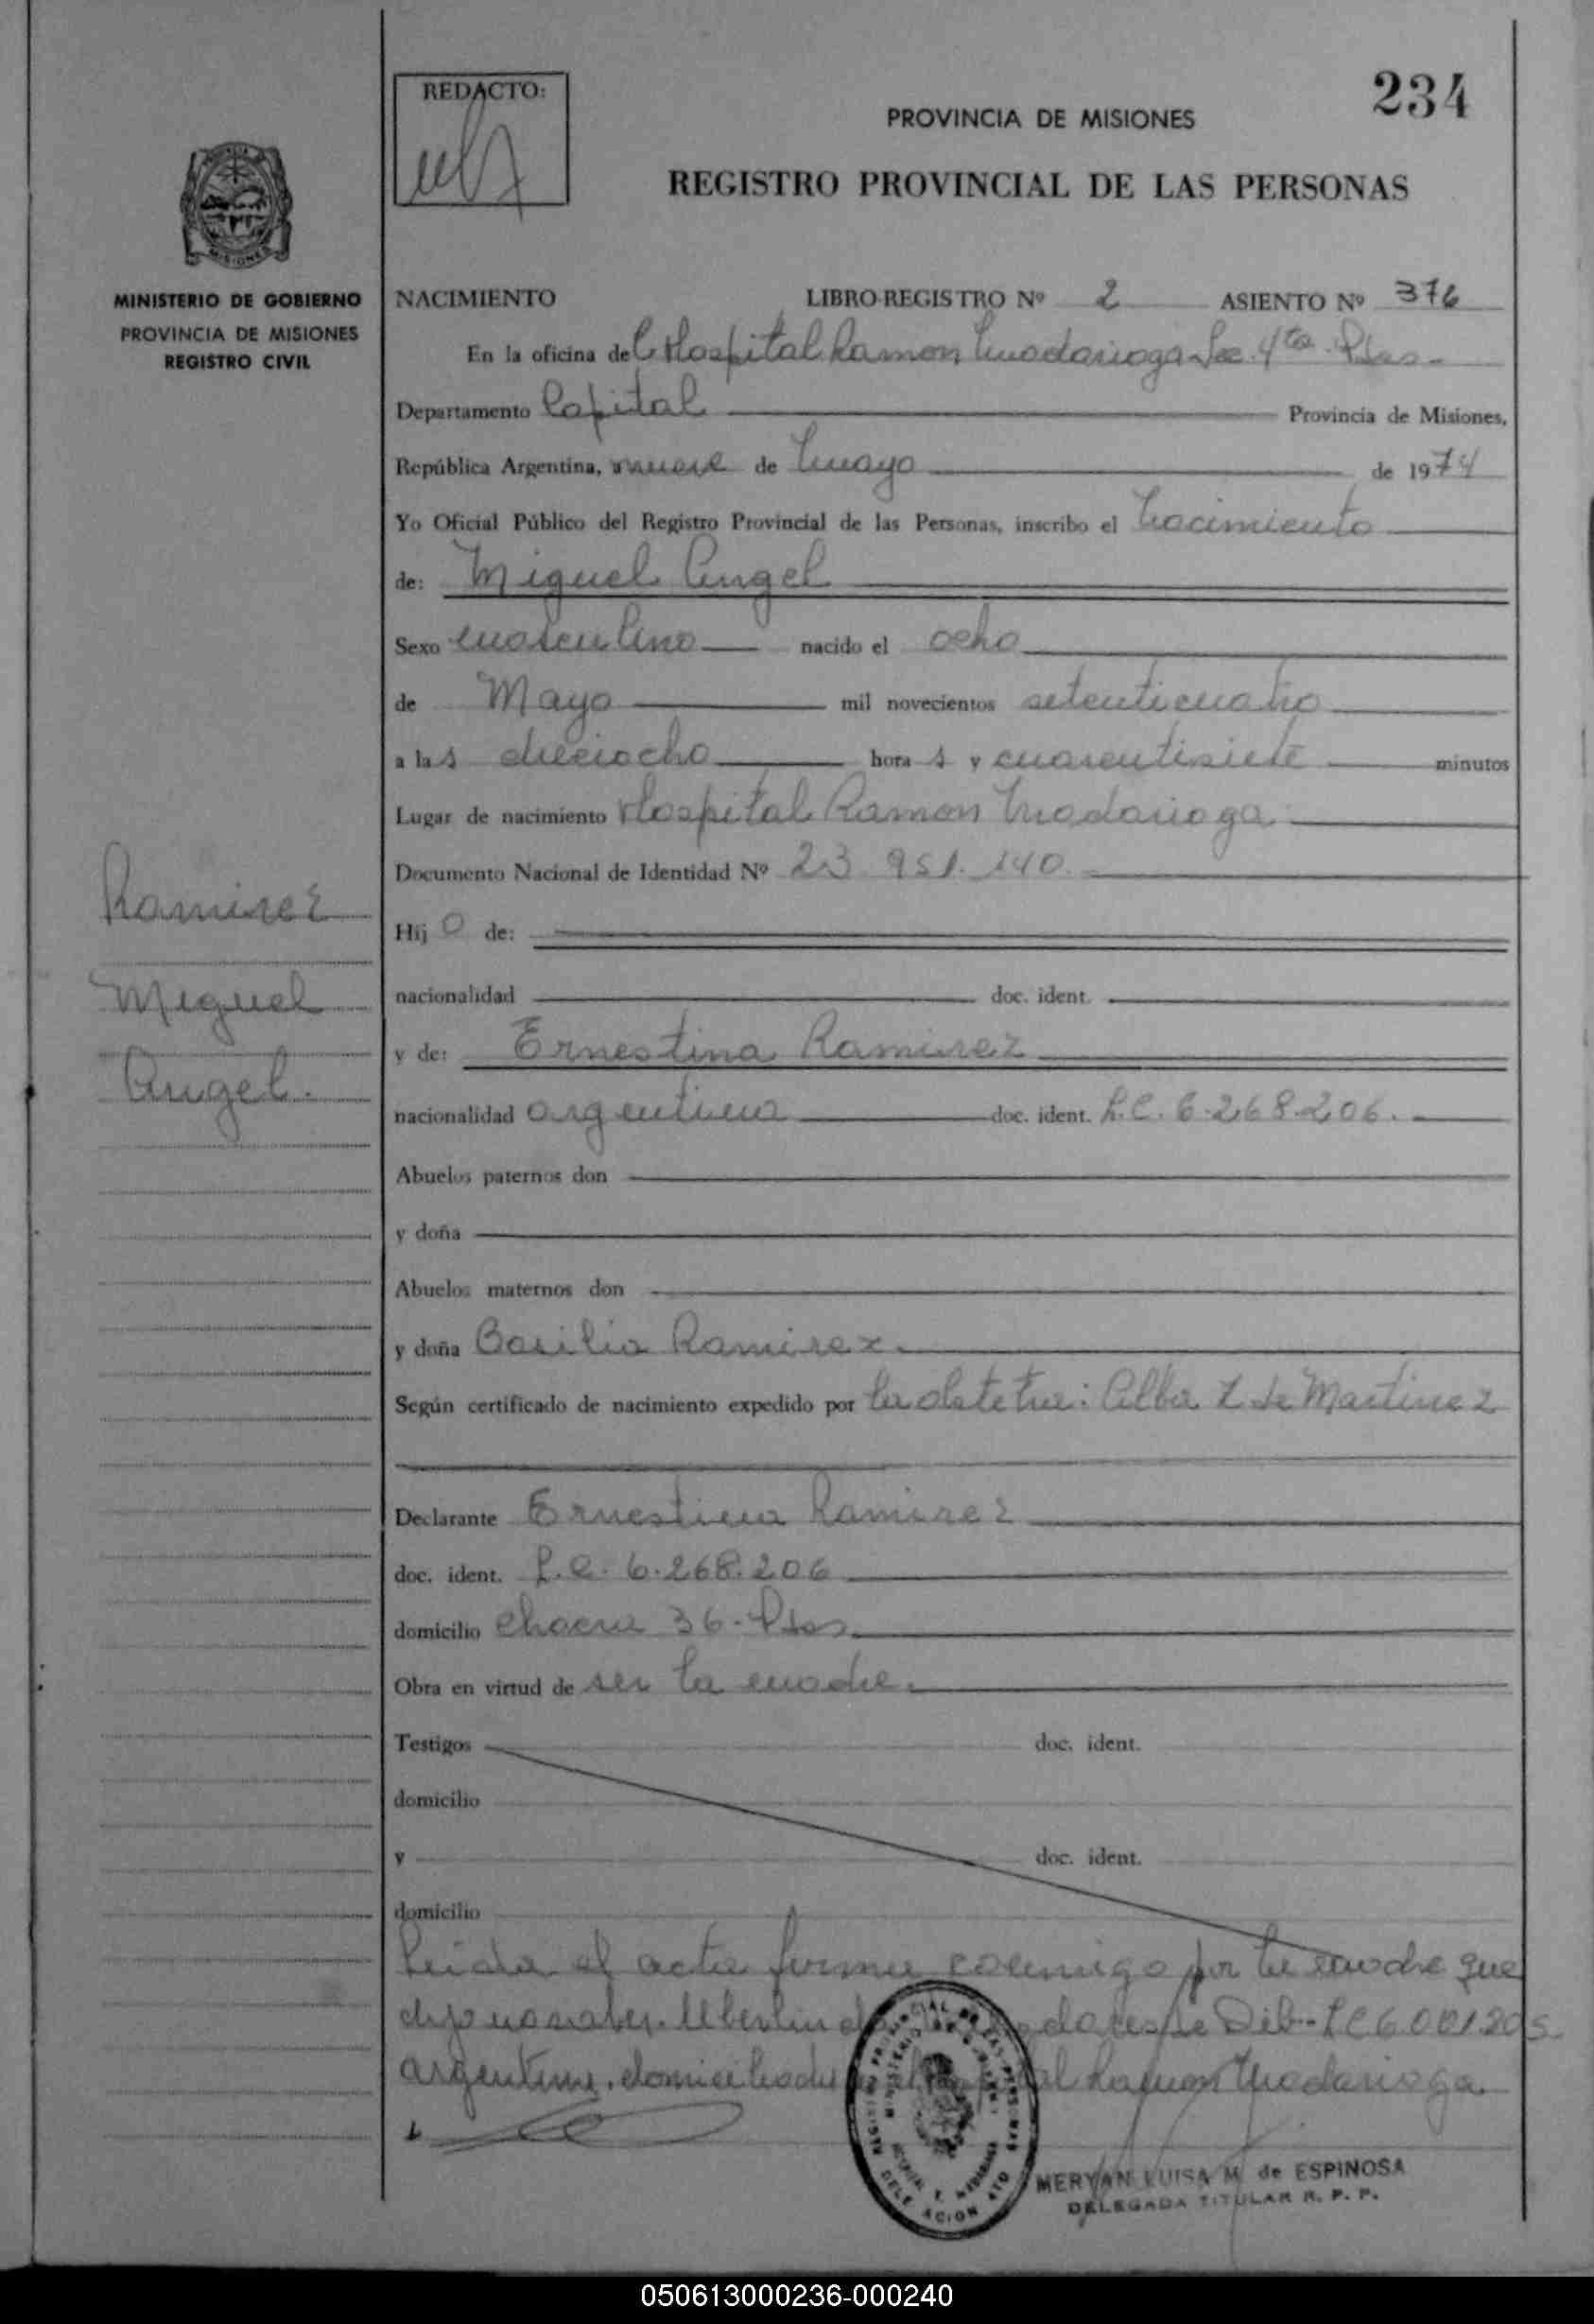 234
REDACTO:
PROVINCIA DE MISIONES
REGISTRO PROVINCIAL DE LAS PERSONAS
MINISTERIO DE GOBIERNO
PROVINCIA DE MISIONES
REGISTRO CIVIL
NACIMIENTO LIBRO-REGISTRO Nº 2 ASIENTO Nº 376
En la oficina del Hospital Ramon Madariaga Sec. 4ta. Pdas.
Departamento Capital Provincia de Misiones,
República Argentina, a nueve de mayo de 1974
Yo Oficial Público del Registro Provincial de las Personas, inscribo el nacimiento
de: Miguel Angel
Sexo masculino nacido el ocho
de Mayo mil novecientos setenticuatro
a las dieciocho horas y cuarentisiete minutos
Lugar de nacimiento Hospital Ramon Madariaga
Documento Nacional de Identidad Nº 23.951.140.
Ramirez
Miguel
Angel.
Hijo de:
nacionalidad doc. ident.
y de: Ernestina Ramirez
nacionalidad argentina doc. ident. L.C. 6.268.206.
Abuelos paternos don
y doña
Abuelos maternos don
y doña Basilia Ramirez.
Según certificado de nacimiento expedido por la obstetra: Alba Z de Martinez
Declarante Ernestina Ramirez
doc. ident. L.C. 6.268.206
domicilio Chacra 36 - Pdas.
Obra en virtud de ser la madre.
Testigos doc. ident.
domicilio
y doc. ident.
domicilio
Leida el acta firma conmigo por la madre que
dijo no saber. de Dib- LC 6001205
argentina, domiciliada Ramon Madariaga.
MERYAN LUISA M. de ESPINOSA
DELEGADA TITULAR R. P. P.
050613000236-000240